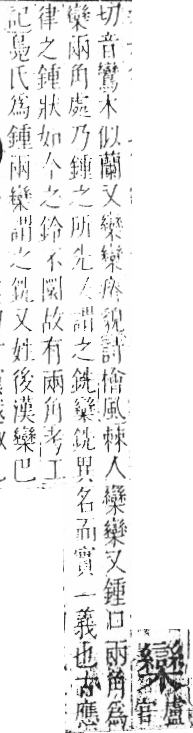 欒盧官
切音鸞木似蘭又欒欒瘠貌詩檜風棘人欒欒又鍾口兩角為
欒兩角處乃鍾之所先人謂之銑欒銑異名而實一義也古應
律之鍾狀如今之鈴不圜故有兩角考工
記鳧氏為鍾兩欒謂之銑又姓後漢欒巴